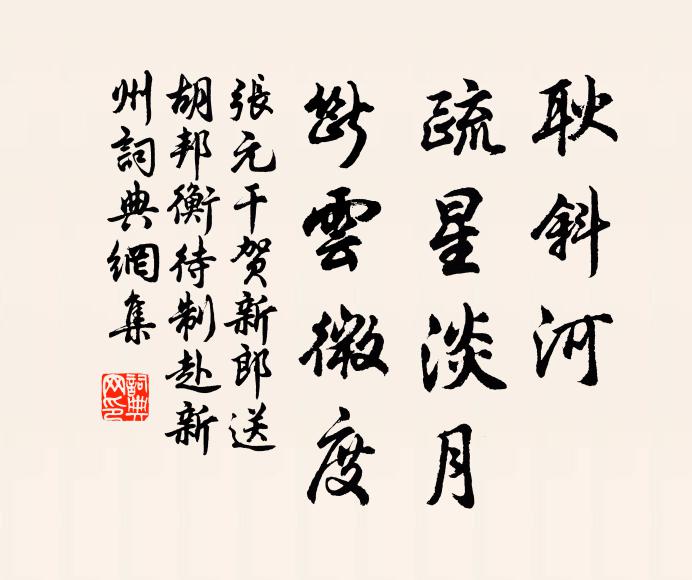 耿斜河
疏星淡月
斷雲微度
張元干賀新郎送
胡邦衡待制赴新
州詞典網集
詞典网印